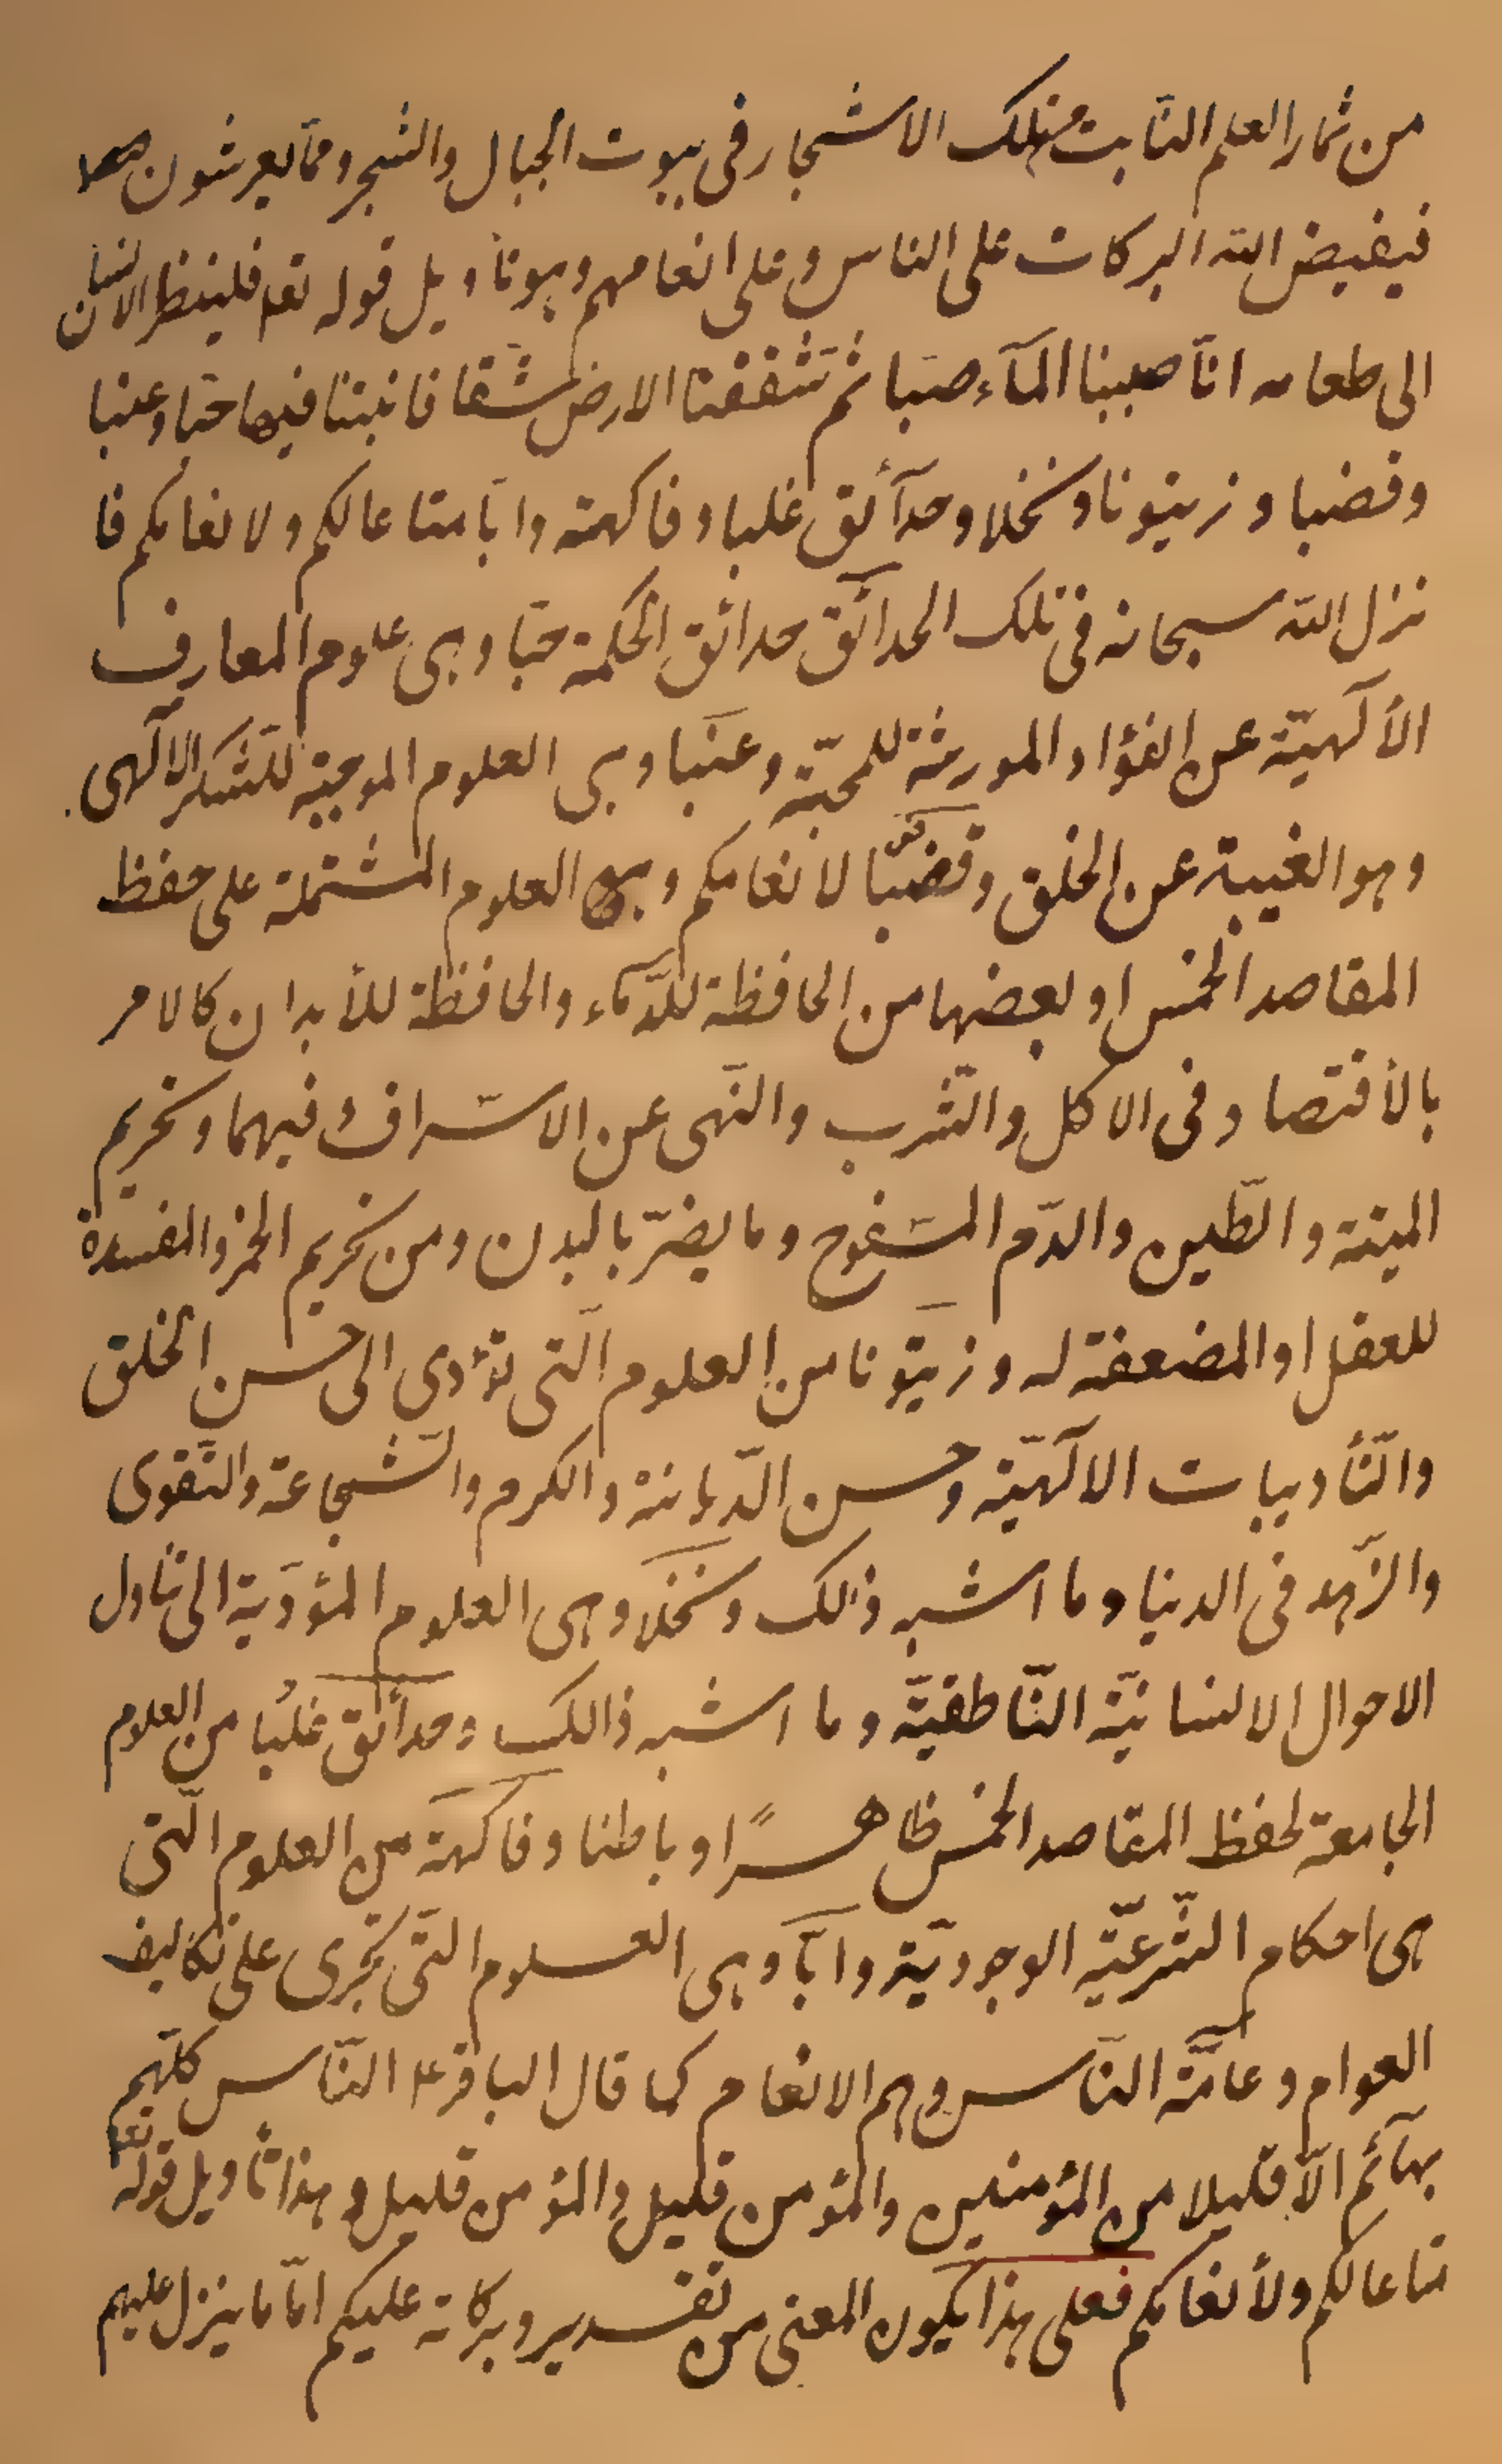 من ثمار العلم النابت من تلك الاشجار فى بيوت الجبال والشجر ومما يعرشون
فيفيض الله البركات على الناس وعلى انعامهم وهو تاويل قوله تعا فلينظر الانسان
الى طعامه انّا صببنا المآء صبّا ثم شققنا الارض شقّا فانبتنا فيها حبّا وعنبا
وقضبا وزيتونا ونخلا وحدآئق غلبا وفاكهة وابّا متاعا لكم ولانعامكم فا
نزل الله سبحانه فى تلك الحدائق حدائق الحكمة حبّا وهى علوم المعارف
الألهيّة عن الفؤاد المورثة للمحبّة وعنبا وهى العلوم الموجبة للشكر الالهى
وهو الغيبة عن الخلق وقضبًا لانعامكم وهى العلوم المشتملة على حفظ
المقاصد الخمس او بعضها من الحافظة للدّمآء والحافظة للأبدان كالامر
بالأقتصاد فى الاكل والشّرب والنّهى عن الاسراف فيهما وتحريم
الميتة والطّين والدّم المسفوح وما يضرّ بالبدن ومن تحريم الخمر والمفسدة
للعقل او المضعفة له وزيتونا من العلوم الّتى تؤدى الى حسن الخلق
والتّأديبات الالهيّة وحسن الدّيانة والكرم والشّجاعة والتّقوى
والزّهد فى الدنيا وما اشبه ذلك ونخلا وهى العلوم المؤدّية الى تناول
الاحوال الانسانيّة النّاطقيّة وما اشبه ذالك وحدآئق غلبًا من العلوم
الجامعة لحفظ المقاصد الخمس ظاهرًا وباطنا وفاكهة من العلوم الّتى
هى احكام الشّرعيّة الوجوديّة وابّا وهى العلوم الّتى تجرى على تكاليف
العوام وعامّة النّاس وهم الانعام كما قال الباقر ع النّاس كلّهم
بهآئم الّا قليلا من المؤمنين والمؤمن قليل والمؤمن قليل وهذا تأويل قوله تعا
متاعا لكم ولأنعامكم فعلى هذا يكون المعنى من تقدير وبركاته عليكم امّا ما ينزل عليهم